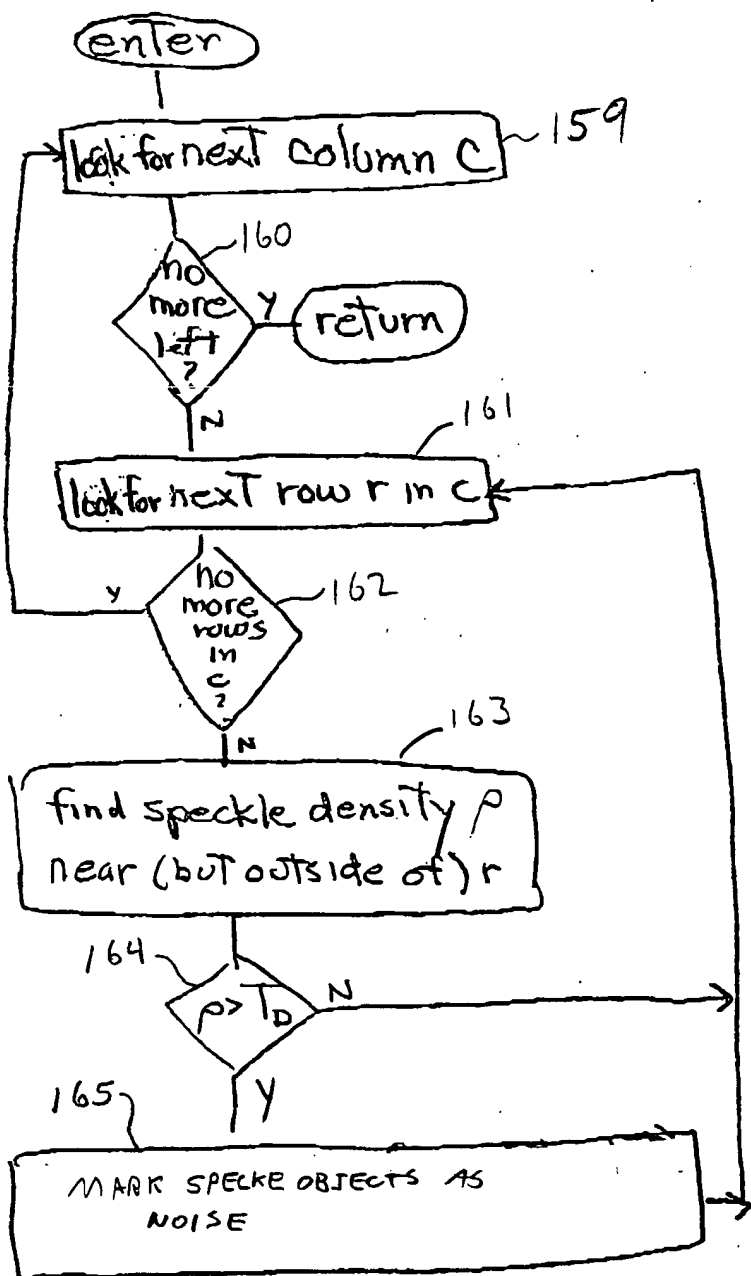 enter
look for next column C
159
160
no
more
left
?
Y
return
N
161
look for next row r in c
no
more
rows
in
c
?
162
Y
N
163
find speckle density ρ
near (but outside of) r
164
ρ > T_D
N
Y
165
MARK SPECKE OBJECTS AS
NOISE